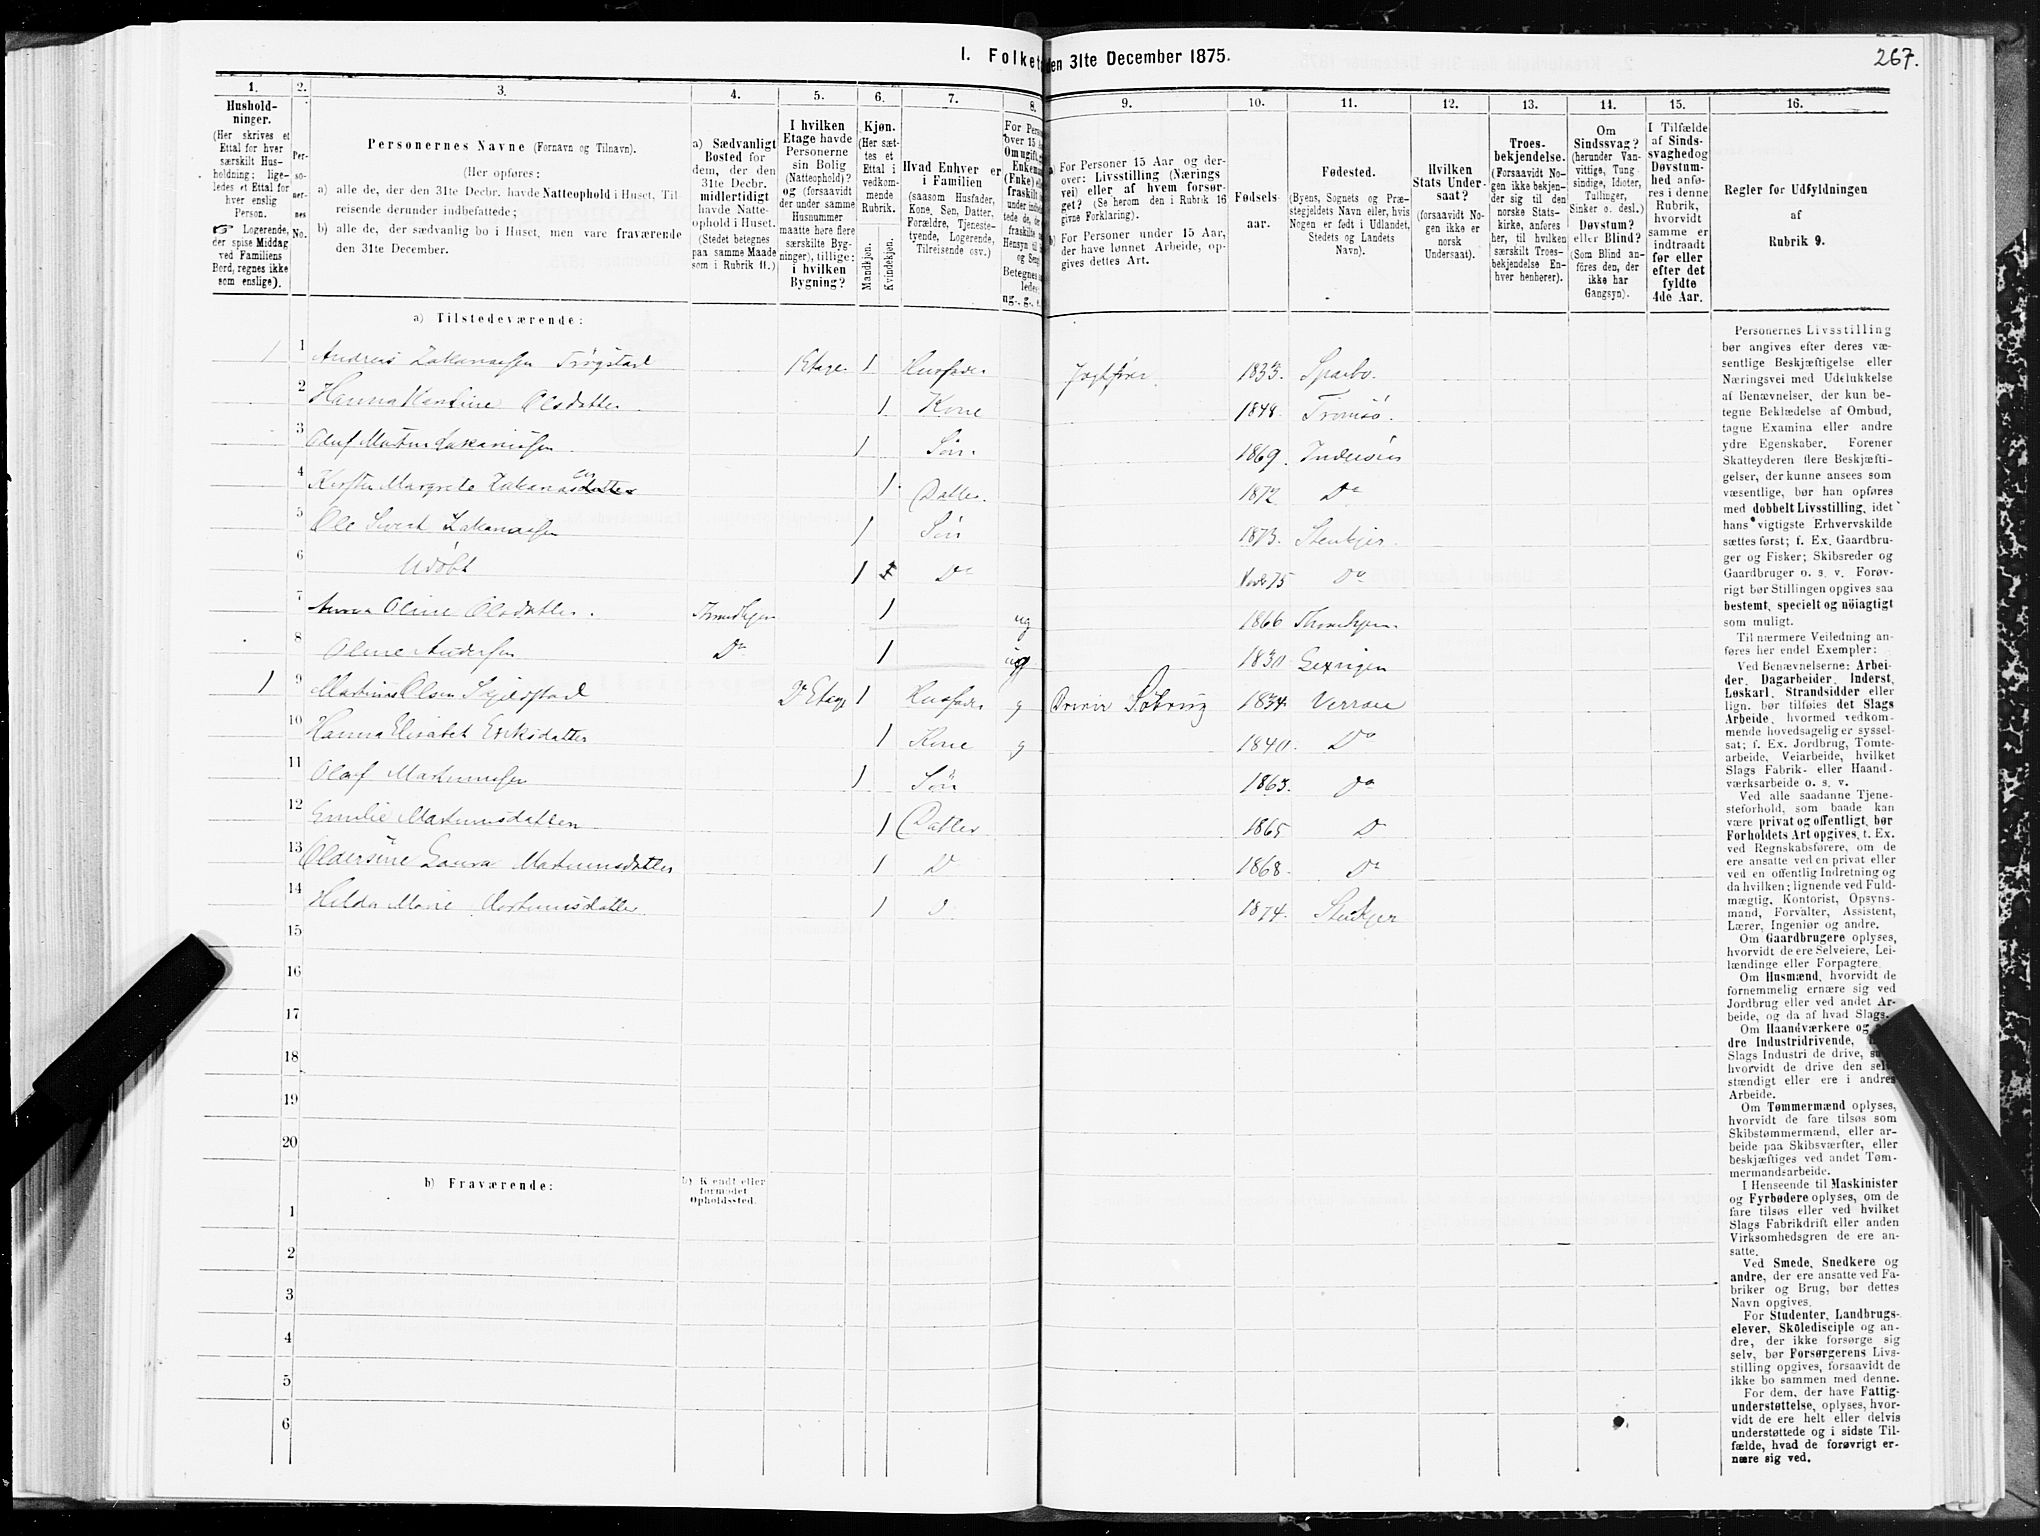 I. Folket den 31te December 1875.
267.
1. 2. 3. 4. 5. 6. 7. 8. 9. 10. 11. 12. 13. 14. 15. 16.
Hushold-
ninger.
(Her skrives et
Ettal for hver
særskilt Hus-
holdning; lige-
ledes et Ettal for
hver enslig
Person.
☞ Logerende,
der spise Middag
ved Familiens
Bord, regnes ikke
som enslige).
Per-
so-
ner-
nes
No.
Personernes Navne (Fornavn og Tilnavn).
(Her opføres:
a) alle de, der den 31te Decbr. havde Natteophold i Huset, Til-
reisende derunder indbefattede;
b) alle de, der sædvanlig bo i Huset, men vare fraværende
den 31te December.
a) Sædvanligt
Bosted for
dem, der den
31te Decbr.
midlertidigt
havde Natte-
ophold i Huset.
(Stedet betegnes
paa samme Maade
som i Rubrik 11.)
I hvilken
Etage havde
Personerne
sin Bolig
(Natteophold)?
og (forsaavidt
der under samme
Husnummer
maatte høre flere
særskilte Byg-
ninger), tillige:
i hvilken
Bygning?
Kjøn.
(Her sæt-
tes et
Ettal i
vedkom-
mende
Rubrik.
Mandkjøn.
Kvindekjøn.
Hvad Enhver er
i Familien
(saasom Husfader,
Kone, Søn, Datter,
Forældre, Tjeneste-
tyende, Logerende,
Tilreisende osv.)
For Pers
over 15 A
Om ugift, g
Enkem
(Fnke) e
fraskilt
under indb
tede de, d
fraskilte
Hensyn til
og Seng
Betegnes s
ledes
ng., g., e.
a) For Personer 15 Aar og der-
over: Livsstilling (Nærings
vei) eller af hvem forsør-
get? (Se herom den i Rubrik 16
givne Forklaring).
For Personer under 15 Aar,
der have lønnet Arbeide, op-
gives dettes Art.
Fødsels-
aar.
Fødested.
(Byens, Sognets og Præ-
stegjeldets Navn eller, hvis
Nogen er født i Udlandet,
Stedets og Landets
Navn).
Hvilken
Stats Under-
saat?
(forsaavidt No-
gen ikke er
norsk
Undersaat).
Troes-
bekjendelse.
(Forsaavidt No-
gen ikke bekjen-
der sig til den
norske Stats-
kirke, anføres
her, til hvilken
særskilt Troes-
bekjendelse En-
hver henhører).
Om
Sindssvag?
(herunder Van-
vittige, Tung
sindige, Idioter,
Tullinger,
Sinker o. desl.)
Døvstum?
eller Blind?
(Som Blind an-
føres den, der
ikke har
Gangsyn).
I Tilfælde
af Sinds-
svaghed og
Døvstum-
hed anfø-
res i denne
Rubrik,
hvorvidt
samme er
indtraadt
før eller
efter det
fyldte
4de Aar.
Regler før Udfyldningen
af
Rubrik 9.
a) Tilstedeværende:
1 1 Andreas Zakariassen Trøgstad 1 Etage. 1 Husfader 1833. Sparbo.
2 Hanna Olsdatter 1 Kone 1848. Tromsø.
3 Oluf Martin Zakariassen 1 Søn. 1869. Inderøen
4 Margrete 1 Datter. 1872 Do
5 Ole Zakariassen 1 Søn 1873. Stenkjer.
6 Udøbt 1 Do 75 Do
7 Oline Olsdatter. 1 ug 1866
8 Oline Andersen Do 1 ug 1830
1 9 Martinus Olsen 1 Husfader g Driver 1834. Verran
10 Hanna Elisabet Eriksdatter 1 Kone g 1840. Do
11 Olaf Martinussen 1 Søn 1863. Do
12 Emilie Martinusdatter 1 Datter 1865 D
13 Laura Martinusdatter 1 D 1868. Do
14 Hilda Marie Martinusdatter 1 D. 1874. Stenkjer
15
16
17
18
19
20
b) Fraværende:
b) Kjendt eller
formodet
Opholdssted.
1
2
3
4
5
6
Personernes Livsstilling
bør angives efter deres væ-
sentlige Beskjæftigelse eller
Næringsvei med Udelukkelse
af Benævnelser, der kun be-
tegne Beklædelse af Ombud,
tagne Examina eller andre
ydre Egenskaber. Forener
Skatteyderen flere Beskjæfti-
gelser, der kunne ansees som
væsentlige, bør han opføres
med dobbelt Livsstilling, idet
hans vigtigste Erhvervskilde
sættes først; f. Ex. Gaardbru-
ger og Fisker; Skibsreder og
Gaardbruger o. s. v. Forøv-
rigt bør Stillingen opgives saa
bestemt, specielt og nöiagtigt
som muligt.
Til nærmere Veiledning an-
føres her endel Exempler:
Ved Benævnelserne: Arbei-
der, Dagarbeider, Inderst,
Løskarl, Strandsidder eller
lign. bør tilføies det Slags
Arbeide, hvormed vedkom-
mende hovedsagelig er syssel-
sat; f. Ex. Jordbrug, Tomte-
arbeide, Veiarbeide, hvilket
Slags Fabrik- eller Haand-
værksarbeide o. s. v.
Ved alle saadanne Tjene-
steforhold, som baade kan
være privat og offentligt, bør
Forholdets Art opgives, t. Ex.
ved Regnskabsførere, om de
ere ansatte ved en privat eller
ved en offentlig Indretning og
da hvilken; lignende ved Fuld-
mægtig, Kontorist, Opsyns-
mand, Forvalter, Assistent,
Lærer, Ingeniør og andre.
Om Gaardbrugere oplyses,
hvorvidt de ere Selveiere, Lei-
lændinge eller Forpagtere.
Om Husmænd, hvorvidt de
fornemmelig ernære sig ved
Jordbrug eller ved andet Ar-
beide, og da af hvad Slags.
Om Haandværkere og
dre Industridrivende,
Slags Industri de drive, sa
hvorvidt de drive den sel
stændigt eller ere i andres
Arbeide.
Om Tømmermænd oplyses,
hvorvidt de fare tilsøs som
Skibstømmermænd, eller ar-
beide paa Skibsværfter, eller
beskjæftiges ved andet Tøm-
mermandsarbeide.
I Henseende til Maskinister
og Fyrbødere oplyses, om de
fare tilsøs eller ved hvilket
Slags Fabrikdrift eller anden
Virksomhedsgren de ere an-
satte.
Ved Smede, Snedkere og
andre, der ere ansatte ved Fa-
briker og Brug, bør dettes
Navn opgives.
For Studenter, Landbrugs-
elever, Skoledisciple og an-
dre, der ikke forsørge sig
selv, bør Forsørgerens Livs-
stilling opgives, forsaavidt de
ikke bo sammen med denne.
For dem, der have Fattig-
understøttelse, oplyses, hvor-
vidt de ere helt eller delvis
understøttede og i sidste Til-
fælde, hvad de forøvrigt er-
nære sig ved.